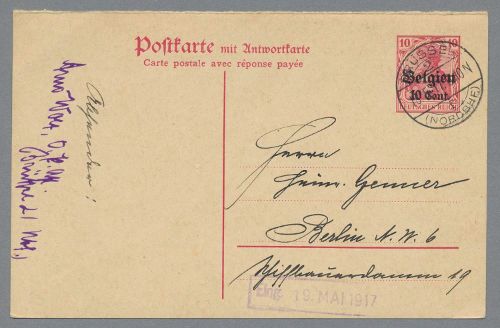 Postkarte mit Antwortkarte
Carte postale avec réponse payée
10 10
Belgien
10 Cent.
DEUTSCHES REICH
BRÜSSEL
(NORDBHF)
Absender:
Herrn
Heinr. Genner
Berlin N.W. 6
Schiffbauerdamm 19
Eing. 19. MAI 1917